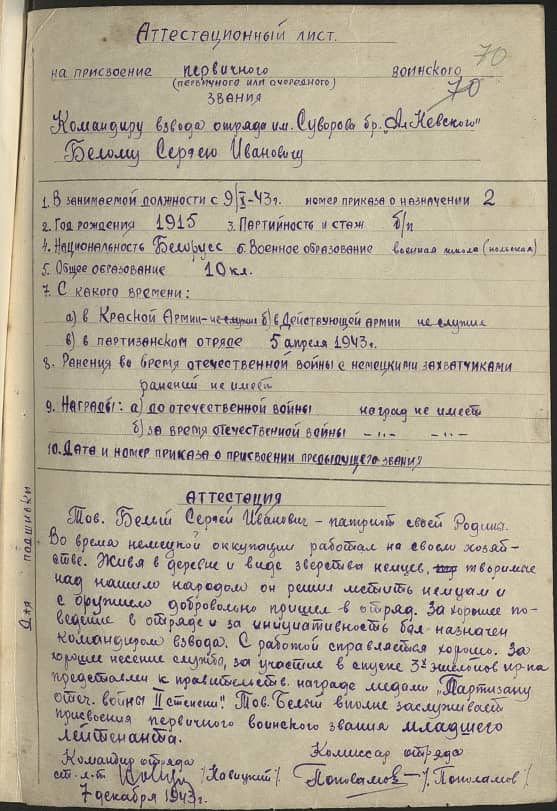 70
Аттестационный лист.
на присвоение первичного воинского
(первичного или очередного)
70
звания
Командиру взвода отряда им. Суворова бр. „Ал Невского"
Белому Сергею Ивановичу
1. В занимаемой должности с 9/X-43г. номер приказа о назначении 2
2. Год рождения 1915 3. Партийность и стаж б/п
4. Национальность Белорусс 6. Военное образование военная школа (польская)
5. Общее образование 10 кл.
7. С какого времени:
а) в Красной Армии - не служил б) в Действующей армии не служил
в) в партизанском отряде 5 апреля 1943г.
8. Ранения во время отечественной войны с немецкими захватчиками
ранений не имеет
9. Награды: а) до отечественной войны наград не имеет
б) за время отечественной войны -"- -"-
10. Дата и номер приказа о присвоении предыдущего звания
Для подшивки
Аттестация
Тов. Белый Сергей Иванович - патриот своей Родины.
Во время немецкой оккупации работал на своем хозяй-
стве. Живя в деревне и видя зверства немцев, творимые
над нашим народом он решил мстить немцам и
с оружием добровольно пришел в отряд. За хорошее по-
ведение в отряде и за инициативность был назначен
командиром взвода. С работой справляется хорошо. За
хорошее несение службы, за участие в спуске 3х эшелонов пр-ка
представлен к правительств. награде медали „Партизану
отеч. войны II степени". Тов. Белый вполне заслуживает
присвоения первичного воинского звания младшего
лейтенанта.
Командир отряда Комиссар отряда
ст. л-т /Новицкий/ /Пополамов/
7 декабря 1943г.